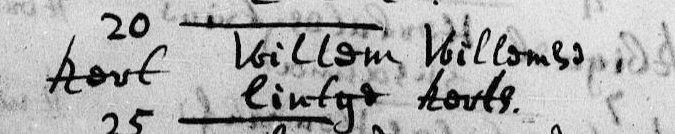 20
kort Willem Willemse.
lintge korts.
25